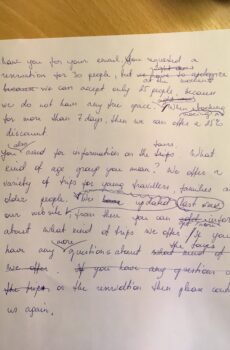 have you for your email. You requested a
reservation for 30 people, but we have to apologize
at the moment
because we can accept only 25 people because
we do not have any free space. When
for more than 7 days, then we can offer a 25%
discount.
also tours.
You asked for information on the trips What
kind of age group you mean? We offer a
variety of trips for young travellers families and
older people. We have updated last week
our website, from there you can get
get more
about what kind of trips we offer. If you
more the tours
have any questions about what kind of
we offer. If you have any questions
the trips or the reservation then please
us again.